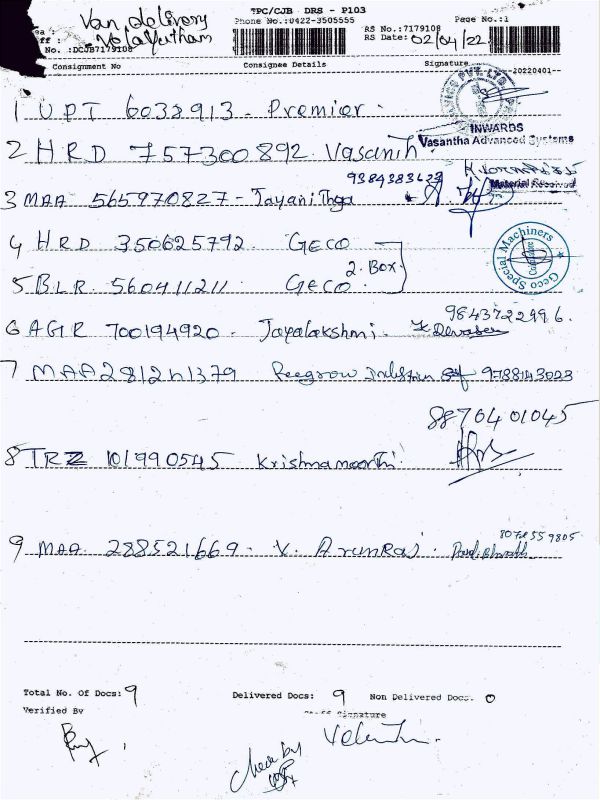 TPC/CJB DRS - P103
Van delivery
Phone No.:0422-3505555
Page No.:1
RS No.:7179108
RS Date: 02/04/22
No. :DCJB7179108
Consignment No Consignee Details Signature
20220401--
1 UPT 6038913 - Premier -
INWARDS
Vasantha Advanced Systems
2 HRD 757300892 Vasanth
9384383623
Material Received
3 MAA 565970827 - Jayanithga
4 HRD 350625792 GECO
2. Box
5 BLR 560411211 GECO
Geco Special Machiners
Coimbatore
9843722996.
6 AGR 700194920 - Jayalakshmi.
7 MAA 281241379 9788143023
8870401045
8 TRZ 101990545 Krishnamoorthi
8072559805
9 MAA 288521669 - V. ArunRaj.
Total No. Of Docs: 9 Delivered Docs: 9 Non Delivered Docs. 0
Verified By
Staff Signature
check by